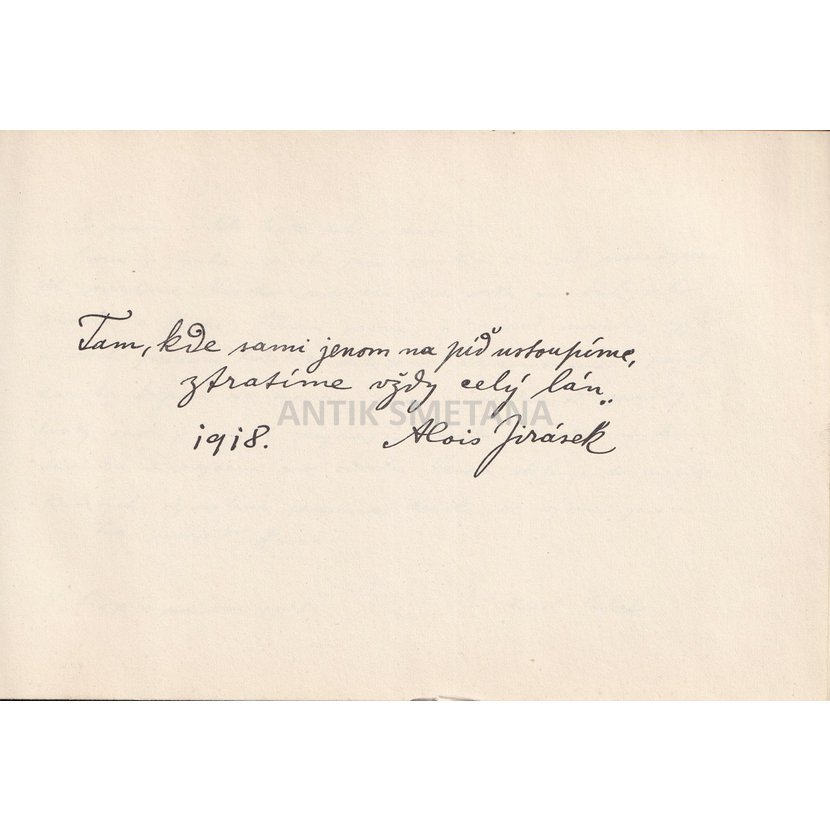 Tam, kde sami jenom na píď ustoupíme,
ztratíme vždy celý lán..
ANTIK SMETANA
1918. Alois Jirásek